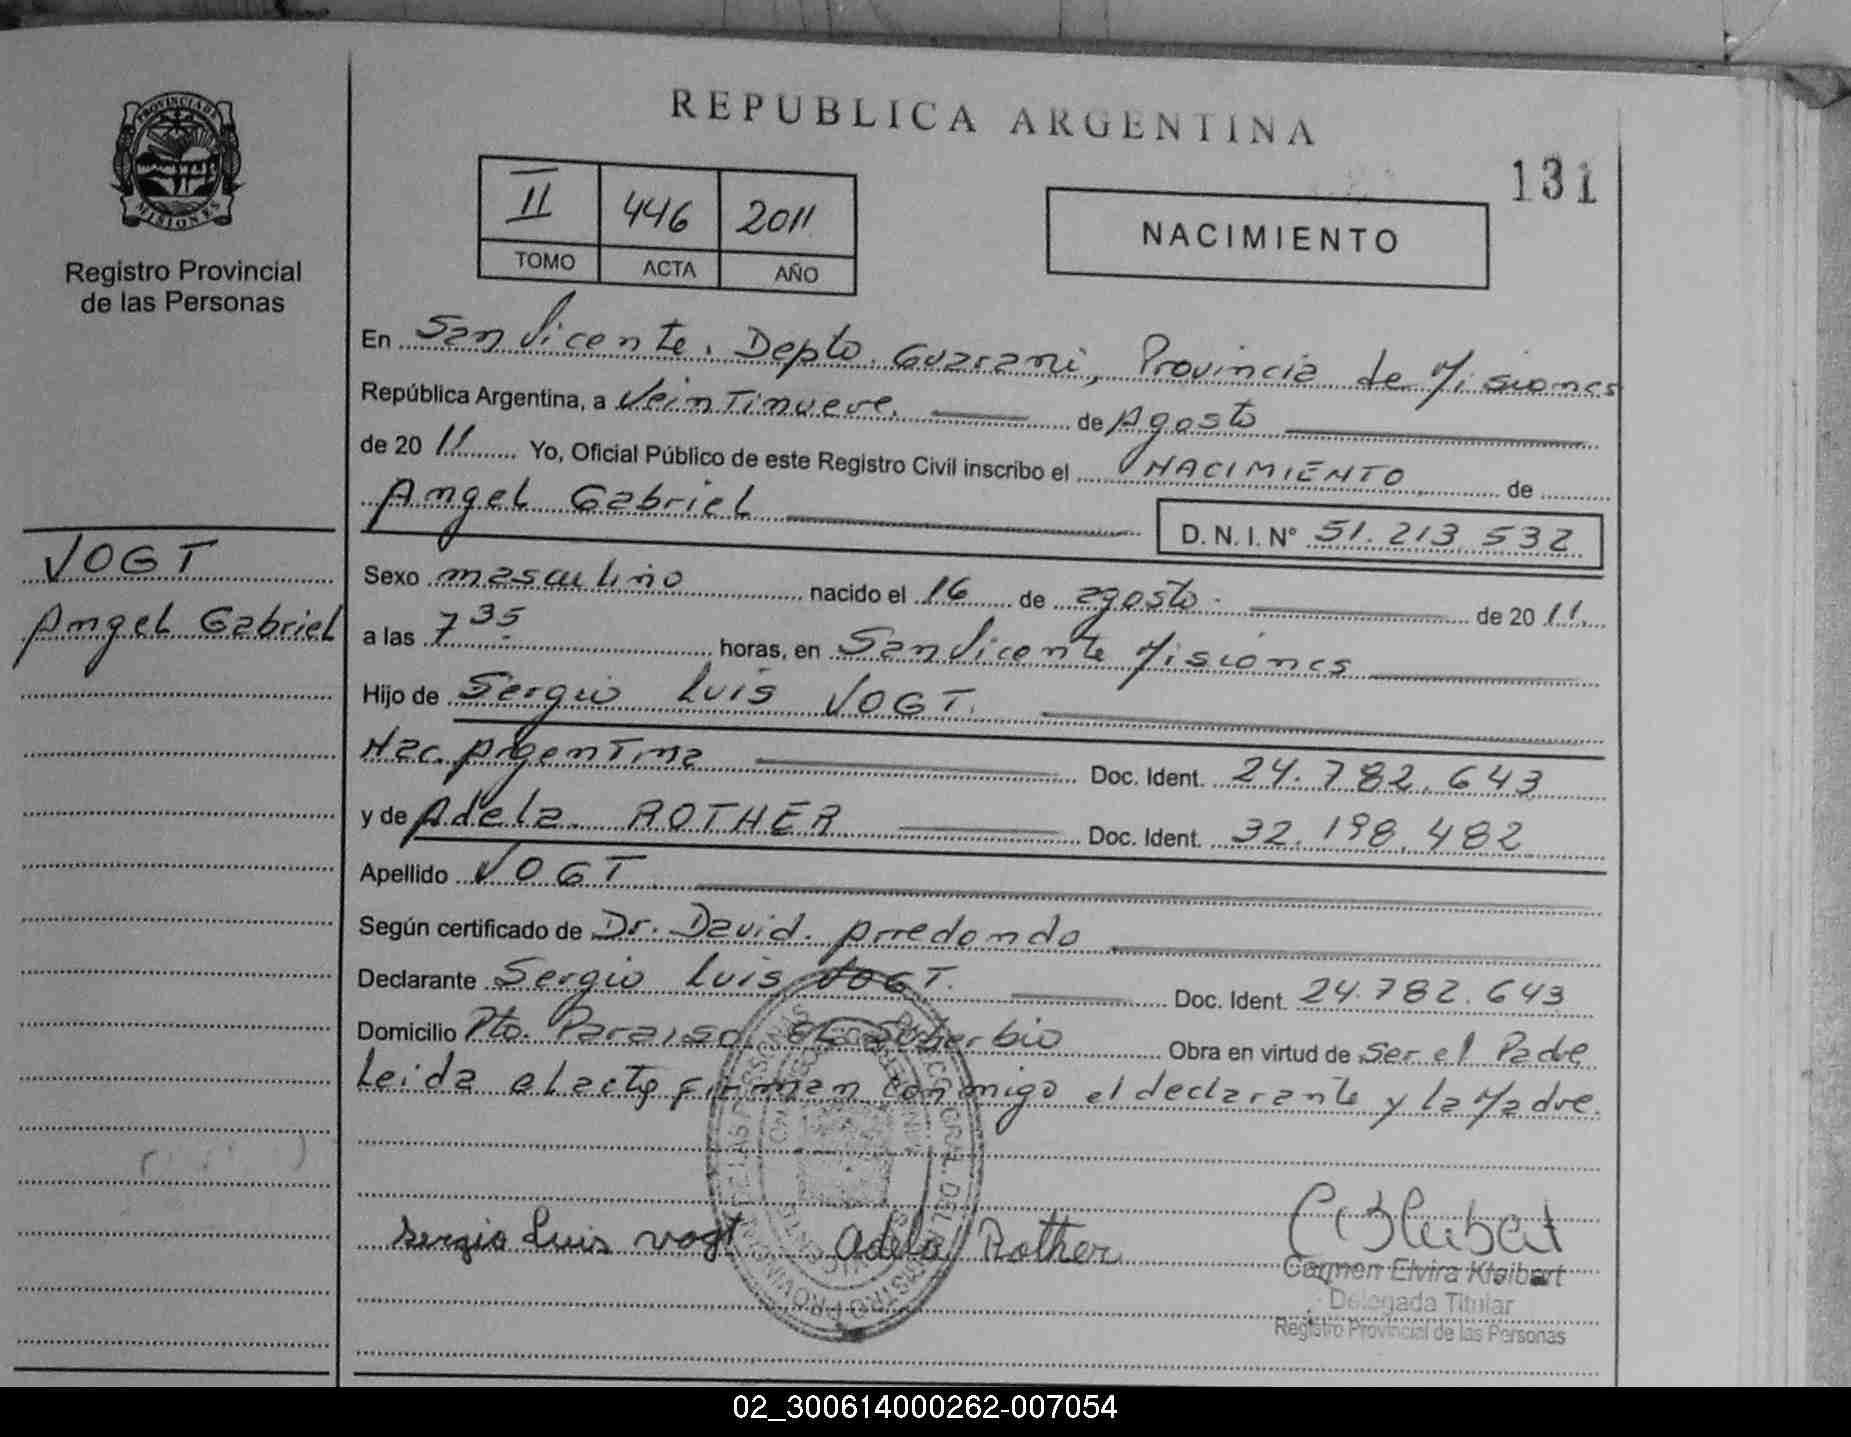 PROVINCIA DE
MISIONES
Registro Provincial
de las Personas
VOGT
Angel Gabriel
REPUBLICA ARGENTINA
131
II 446 2011
TOMO ACTA AÑO
NACIMIENTO
En San Vicente, Depto. Guarani, Provincia de Misiones
República Argentina, a Veintinueve. de Agosto
de 2011 Yo, Oficial Público de este Registro Civil inscribo el NACIMIENTO de
Angel Gabriel D. N. I. N° 51.213.532
Sexo masculino nacido el 16 de agosto de 2011.
a las 7 35 horas, en San Vicente Misiones
Hijo de Sergio Luis VOGT.
Nac. Argentina Doc. Ident. 24.782.643
y de Adela ROTHER Doc. Ident. 32.198.482
Apellido VOGT
Según certificado de Dr. David Arredondo
Declarante Sergio Luis VOGT. Doc. Ident. 24.782.643
Domicilio Pto. Paraiso El Soberbio Obra en virtud de Ser el Padre
Leida el acta firman conmigo el declarante y la Madre.
Sergio Luis vogt Adela Rother
Carmen Elvira Kleibert
Delegada Titular
Registro Provincial de las Personas
02_300614000262-007054